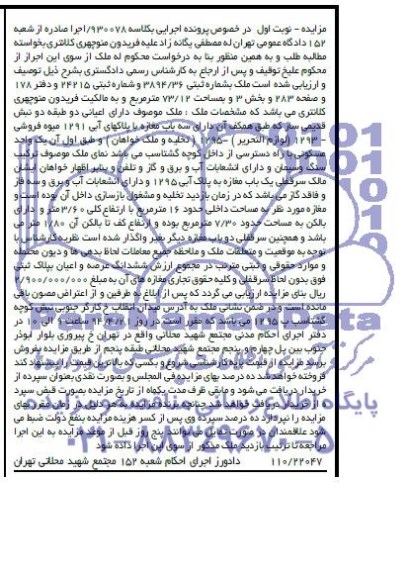 مزایده - نوبت اول در خصوص پرونده اجرایی بکلاسه ۹۳۰۰۷۸/اجرا صادره از شعبه
۱۵۲ دادگاه عمومی تهران له مصطفی یگانه زاد علیه فریدون منوچهری کلانتری بخواسته
مطالبه طلب و به همین منظور بنا به درخواست محکوم له ملک از سوی این اجراء از
محکوم علیخ توقیف و پس از ارجاع به کارشناس رسمی دادگستری بشرح ذیل توصیف
و ارزیابی شده است ملک بشماره ثبتی ۳۸۹۴/۳۶ و شماره ثبتی ۲۴۲۱۵ و دفتر ۱۷۸
و صفحه ۲۸۳ و بخش ۳ و بمساحت ۷۳/۱۲ مترمربع و به مالکیت فریدون منوچهری
کلانتری می باشد که مشخصات ملک : ملک موصوف دارای اعیانی دو طبقه دو نبش
قدیمی ساز که طبق همکف آن دارای سه باب مغازه با پلاکهای آبی ۱۲۹۱ میوه فروشی
- ۱۲۹۳ (لوازم التحریر) - ۱۲۹۵ ( تخلیه و ملک خواهان ) و طبق اول آن یک واحد
مسکونی با راه دسترسی از داخل کوچه گشتاسب می باشد نمای ملک موصوف ترکیب
سنگ وسیمان و دارای انشعابات آب و برق و گاز و تلفن و بنابر اظهار خواهان ایشان
مالک سرقفلی یک باب مغازه به پلاک آبی ۱۲۹۵ و دارای انشعابات آب و برق و سه فاز
و فاقد گاز می باشد که در زمان بازدید تخلیه و مشغول بازسازی داخل آن بوده است و
مغازه مورد نظر به مساحت داخلی حدود ۱۶ مترمربع با ارتفاع کلی ۳/۶۰ متر و دارای
بالکن به مساحت حدود ۷/۳۰ مترمربع بوده و ارتفاع کف تا بالکن آن ۱/۸۰ متر می
باشد و همچنین سرقفلی دو باب مغازه دیگر بغیر واگذار شده است نظریه کارشناس با
توجه به موقعیت و متعلقات ملک و ملاحظه جمیع معاملات لحاظ بدهی ها و دیون محتمله
و موارد حقوقی و ثبتی مترتب در مجموع ارزش ششدانگ عرصه و اعیان بپلاک ثبتی
فوق بدون لحاظ سرقفلی و کلیه حقوق تجاری مغازه های آن به مبلغ ۲/۹۰۰/۰۰۰/۰۰۰
ریال بنای مزایده ارزیابی می گردد که پس از ابلاغ به طرفین و از اعتراض مصون باقی
مانده است و در ضمن نشانی ملک به آدرس میدان انقلاب خ کارگر جنوبی نبش کوچه
گشتاسب پ ۱۲۹۵ می باشد که مقرر است در روز ۹۴/۴/۲۱ ساعت ۹ الی ۱۰ در
دفتر اجرای احکام مدنی مجتمع شهید محلاتی واقع در تهران خ پیروزی بلوار ابوذر
جنوب بین پل چهارم و پنجم مجتمع شهید محلاتی طبقه پنجم از طریق مزایده بفروش
برسد مزایده از قیمت پایه کارشناسی شروع و بکسی که بالاترین قیمت را پیشنهاد کند
فروخته خواهد شد ده درصد بهای مزایده فی المجلس و بصورت نقدی بعنوان سپرده از
خریدار دریافت می شود و مابقی ظرف مدت یکماه از تاریخ مزایده بصورت قبض سپرد
ه از خریدار دریافت خواهد شد. چنانچه برنده مزایده به هر دلیل در زمان مقرر بهای
مزایده را نپردازد ده درصد سپرده وی پس از کسر هزینه مزایده بنفع دولت ضبط می
شود علاقمندان در صورت تمایل می توانند پنج روز قبل از موعد مزایده به این اجرا
مراجعه تا ترتیب بازدید ملک مذکور از سوی این اجرا داده شود
۱۱۰/۲۲۰۴۷ دادورز اجرای احکام شعبه ۱۵۲ مجتمع شهید محلاتی تهران